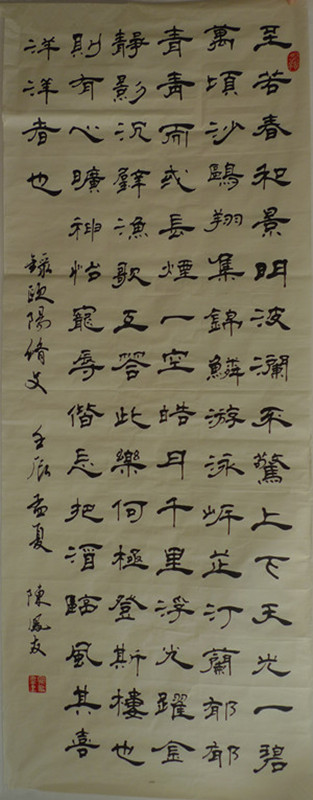 至若春和景明波瀾不驚上下天光一碧
萬頃沙鷗翔集錦鱗游泳岍芷汀蘭郁郁
青青而或長煙一空皓月千里浮光躍金
靜影沉璧漁歌互答此樂何極登斯樓也
則有心曠神怡寵辱偕忘把酒臨風其喜
洋洋者也
錄歐陽脩文 壬辰孟夏 陳鳳友